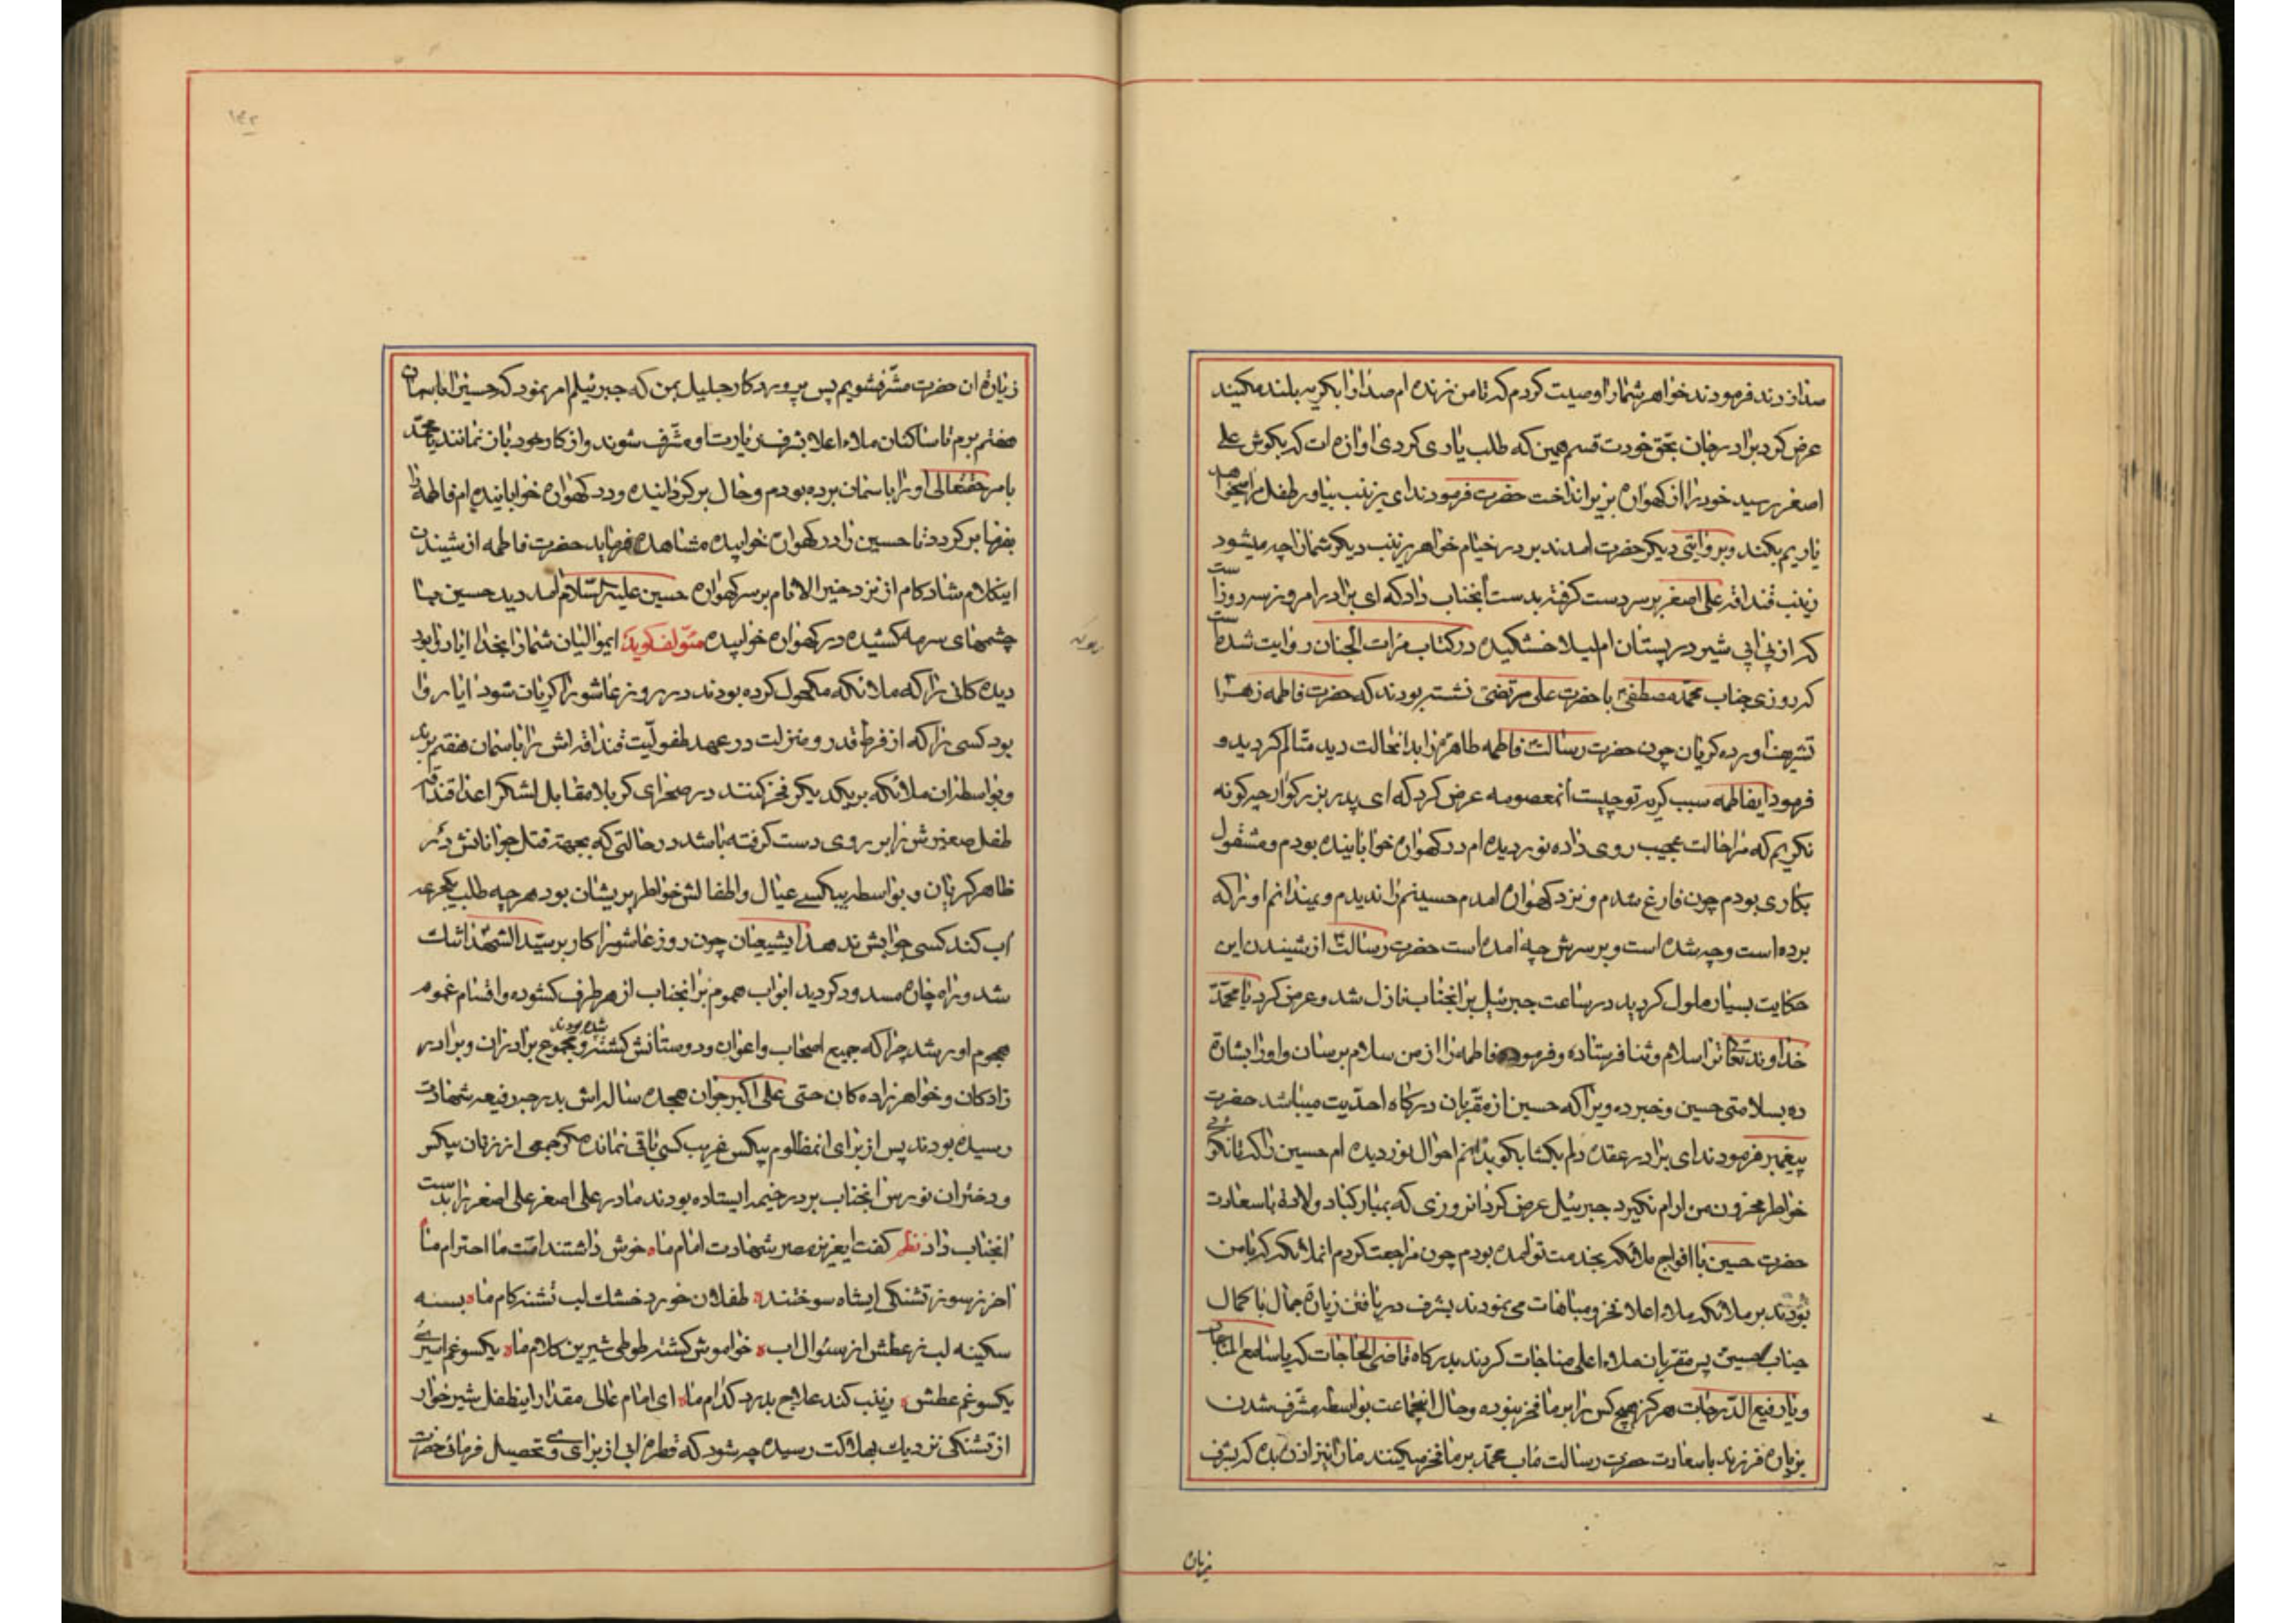 صدا زدند فرمودند خواهر شمارا وصیت کردم که تا من زنده ام صدارا بکریه بلند مکنید
عرض کرد برادر جان بحق خودت قسم همین که طلب یاری کردی اوازه ات که بکوش علی
اصغر رسید خود را از کهواره بزیر انداخت حضرت فرمودند ای زینب بیاور طفل مرا
زینب قنداقه علی اصغر بر سر دست کرفته بدست انجناب داد که ای برادر امروز سه روز است
که از بی ابی شیر در پستان ام لیلا خشکیده در کتاب مرات الجنان روایت شده است
که روزی جناب محمد مصطفی با حضرت علی مرتضی نشسته بودند که حضرت فاطمه زهرا
تشریف اورده کریان چون حضرت رسالت فاطمه طاهره را بدانحالت دید متالم کردید و
فرمود ایفاطمه سبب کریه تو چیست انمعصومه عرض کرد که ای پدر بزرکوار چرکونه
نکریم که مرا حالت عجیب روی داده نوردیده ام در کهواره خوابانیده بودم و مشغول
بکاری بودم چون فارغ شدم و نزد کهواره امدم حسینم را ندیدم و نمیدانم او را که
برده است و چه شده است و بر سرش چه امده است حضرت رسالت از شنیدن این
حکایت بسیار ملول کردید در ساعت جبرئیل بر انجناب نازل شد و عرض کرد یا محمد
خداوند تعالی ترا سلام و ثنا فرستاده و فرموده فاطمه را از من سلام برسان و او را بشارة
ده بسلامتی حسین و خبر ده ویرا که حسین از مقربان درکاه احدیت میباشد حضرت
پیغمبر فرمودند ای برادر عقده دلم بکشا بکو بدانم احوال نوردیده ام حسین را که تا نکوئی
خواطر محزون من ارام نکیرد جبرئیل عرض کرد انروزی که بمبارکباد ولادة با سعادت
حضرت حسین با افواج ملائکه بخدمت تو امده بودم چون مراجعت کردم انملائکه که با من
بودند بر ملائکه ملاء اعلا فخر و مباهات می نمودند بشرف دریافتن زیارة جمال با کمال
جناب حسین پس مقربان ملاء اعلی مناجات کردند بدرکاه قاضی الحاجات که یا سامع المناجات
و یا رفیع الدرجات هرکز هیچ کس را بر ما فخر نبوده و حال انجماعت بواسطه مشرف شدن
بزیارة فرزند با سعادت حضرت رسالت ماب محمد بر ما فخر میکنند ما را نیز اذن بده که بشرف
زیارة
۱۴۲
زیارة ان حضرت مشرف شویم پس پروردکار جلیل بمن که جبرئیلم امر نمود که حسین را باسمان
هفتم برم تا ساکنان ملاء اعلا بشرف زیارت او مشرف شوند و از کار خود باز نمانند یا محمد
بامر حقتعالی او را باسمان برده بودم و حال برکردانیده و در کهواره خوابانیده ام فاطمه را
بفرما برکردد تا حسین را در کهواره خوابیده مشاهده فرماید حضرت فاطمه از شنیدن
اینکلام شاد کام از نزد خیر الانام بر سر کهواره حسین علیه السلام امد دید حسین با
چشمهای سرمه کشیده در کهواره خوابیده مؤلف کوید ایموالیان شمارا بخدا ایا روا بود
دیده کانی را که ملائکه مکحول کرده بودند در روز عاشورا کریان شود ایا روا
بود کسی را که از فرط قدر و منزلت در عهد طفولیت قنداقه اش را باسمان هفتم برند
و بواسطه ان ملائکه بر یکدیکر فخر کنند در صحرای کربلا مقابل لشکر اعدا قنداقه
طفل صغیرش را بر روی دست کرفته باشد در حالتی که بجهة قتل جوانانش
ظاهر کریان و بواسطه بیکسی عیال و اطفالش خواطر پریشان بود هر چه طلب یکجرعه
اب کند کسی جوابش ندهد ایشیعیان چون روز عاشورا کار بر سید الشهدا تنک
شد و راه چاره مسدود کردید ابواب هموم بر انجناب از هر طرف کشوده و اقسام غموم
هجوم اور شد چرا که جمیع اصحاب و اعوان و دوستانش کشته شده بودند و مجموع برادران و برادر
زادکان و خواهر زاده کان حتی علی اکبر جوان هجده ساله اش بدرجه رفیعه شهادت
رسیده بودند پس از برای انمظلوم بیکس غریب کسی باقی نمانده مکر جمعی از زنان بیکس
و دختران نورس انجناب بر در خیمه ایستاده بودند مادر علی اصغر علی اصغر را بدست
انجناب داد نظم کفت ایعزیز مصر شهادت امام ما خوش داشتند امت ما احترام ما
اخر ز سوز تشنکی ایشاه سوختند طفلان خورد خشک لب تشنه کام ما بسته
سکینه لب ز عطش از سئوال اب خواموش کشته طوطی شیرین کلام ما یکسو غم اسیری
یکسو غم عطش زینب کند علاج بدرد کدام ما ای امام عالی مقدار اینطفل شیر خوار
از تشنکی نزدیک بهلاکت رسیده چه شود که قطره ابی از برای وی تحصیل فرمائی حضرت